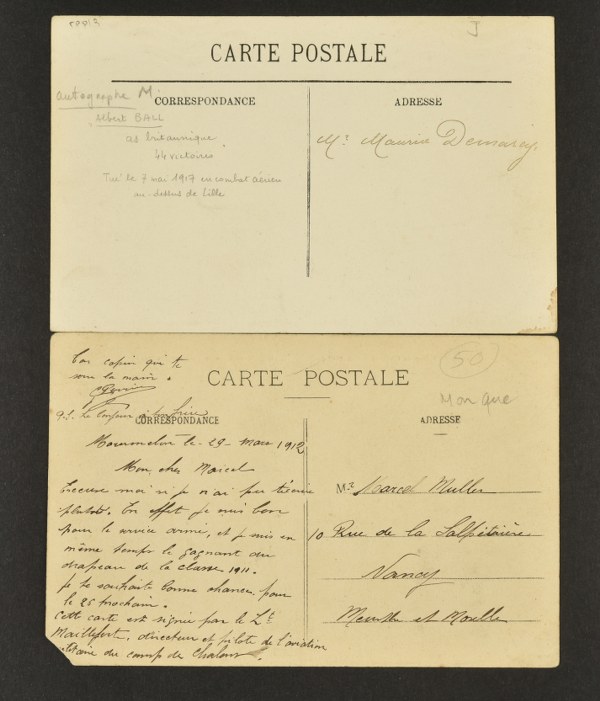 J
CARTE POSTALE
autographe M.
CORRESPONDANCE
ADRESSE
Albert BALL
as britannique
44 victoires
Tué le 7 mai 1917 en combat aérien
au-dessus de Lille
Mr Maurice
Ton copin qui te
serre la main.
50
CARTE POSTALE
Manque
CORRESPONDANCE
ADRESSE
Mourmelon le 29 Mars 1912
Mon cher Marcel
Excuse moi si je n'ai pu t'écrire
plutôt. En effet je suis bon
pour le service armé, et je suis en
même temps le gagnant du
drapeau de la classe 1911.
je te souhait bonne chance pour
le 25 prochain.
Cette carte est signée par le Lt
Maillefert, directeur et pilote de l'aviation
du camp de Chalons
Mr Marcel Muller
10 Rue de la Salpêtrière
Nancy
Meurthe et Moselle